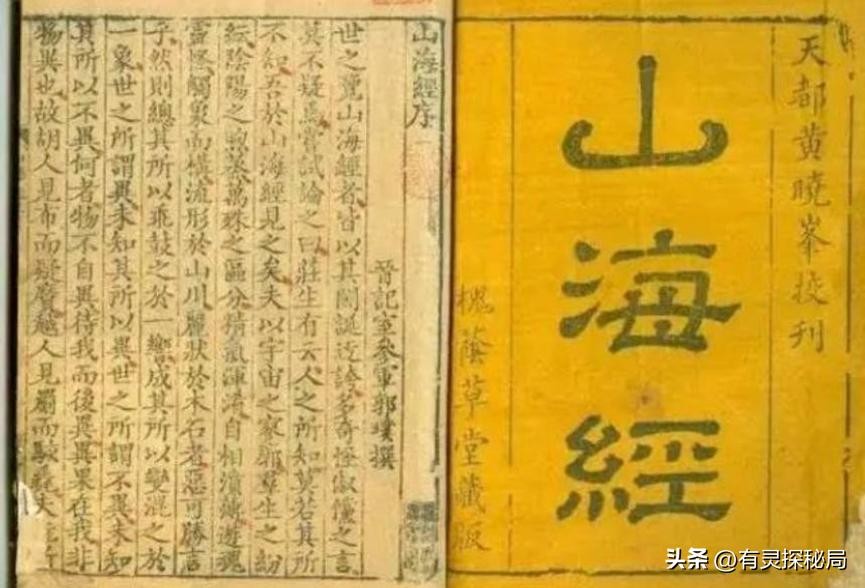 天都黄曉峯挍刊
山海經
槐蔭草堂藏版
山海經序
晉記室參軍郭璞撰
世之覽山海經者皆以其閎誕迂誇多奇怪俶儻之言
莫不疑焉嘗試論之曰莊生有云人之所知莫若其所
不知吾於山海經見之矣夫以宇宙之寥廓羣生之紛
紜陰陽之煦蒸萬殊之區分精氣渾淆自相濆薄遊魂
靈怪觸象而構流形於山川麗狀於木石者惡可勝言
乎然則總其所以乖鼓之於一響成其所以變混之於
一象世之所謂異未知其所以異世之所謂不異未知
其所以不異何者物不自異待我而後異異果在我非
物異也故胡人見布而疑黂越人見罽而駭毳夫
头条 @有灵探秘局